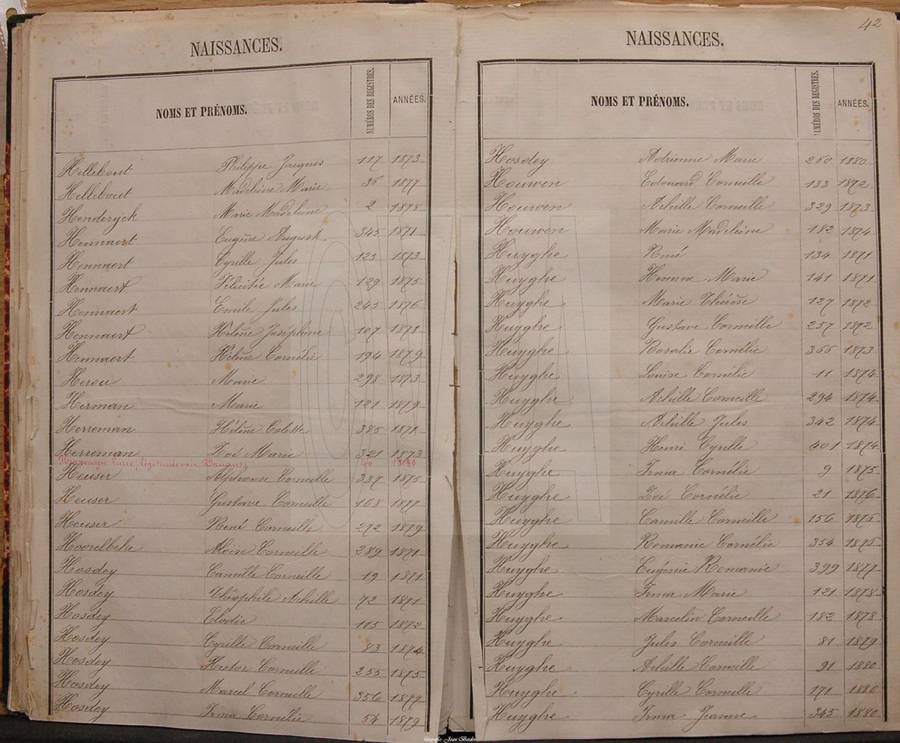 NAISSANCES.
NOMS ET PRÉNOMS. NUMÉROS DES REGISTRES. ANNÉES.
Hillebout Philippe Jacques 117 1873
Hillebout Madeleine Marie 35 1877
Henderyck Marie Madeleine 2 1878
Hennaert Eugène August 345 1871
Hennaert Cyrille Jules 123 1873
Hennaert Félicitée Marie 129 1875
Hennaert Emile Jules 245 1876
Hennaert Hélène Joséphine 107 1873
Hennaert Hélène Cornélie 194 1879
Marie 298 1873
Herman Marie 121 1879
Herreman Hélène Céleste 385 1871
Herreman Zoé Marie 321 1873
légitimée 40 1880
Heuser Alphonse Corneille 337 1875
Heuser Gustave Corneille 168 1877
Heuser René Corneille 272 1879
Hoorelbeke Aloïs Corneille 289 1871
Hosdey Camille Corneille 19 1871
Hosdey Théophile Achille 72 1871
Hosdey Elodie 115 1872
Hosdey Cyrille Corneille 83 1874
Hosdey Hector Corneille 255 1875
Hosdey Marcel Corneille 356 1877
Hosdey Irma Cornélie 54 1879
42
NAISSANCES.
NOMS ET PRÉNOMS. NUMÉROS DES REGISTRES. ANNÉES.
Hosdey Adrienne Marie 250 1880
Houwen Edouard Corneille 133 1872
Houwen Achille Corneille 329 1873
Houwen Marie Madeleine 182 1874
Huyghe René 134 1871
Huyghe Marie 141 1871
Huyghe Marie Thérèse 127 1872
Huyghe Gustave Corneille 257 1872
Huyghe Rosalie Cornélie 355 1873
Huyghe Louise Cornélie 11 1874
Huyghe Achille Corneille 294 1874
Huyghe Achille Jules 342 1874
Huyghe Henri Cyrille 401 1874
Huyghe Irma Cornélie 9 1875
Huyghe Zoé Cornélie 21 1876
Huyghe Camille Corneille 156 1875
Huyghe Romanie Cornélie 354 1875
Huyghe Eugénie Romanie 399 1877
Huyghe Irma Marie 121 1878
Huyghe Marcelin Corneille 182 1878
Huyghe Jules Corneille 81 1879
Huyghe Achille Corneille 91 1880
Huyghe Cyrille Corneille 171 1880
Huyghe Irma Jeanne 345 1880